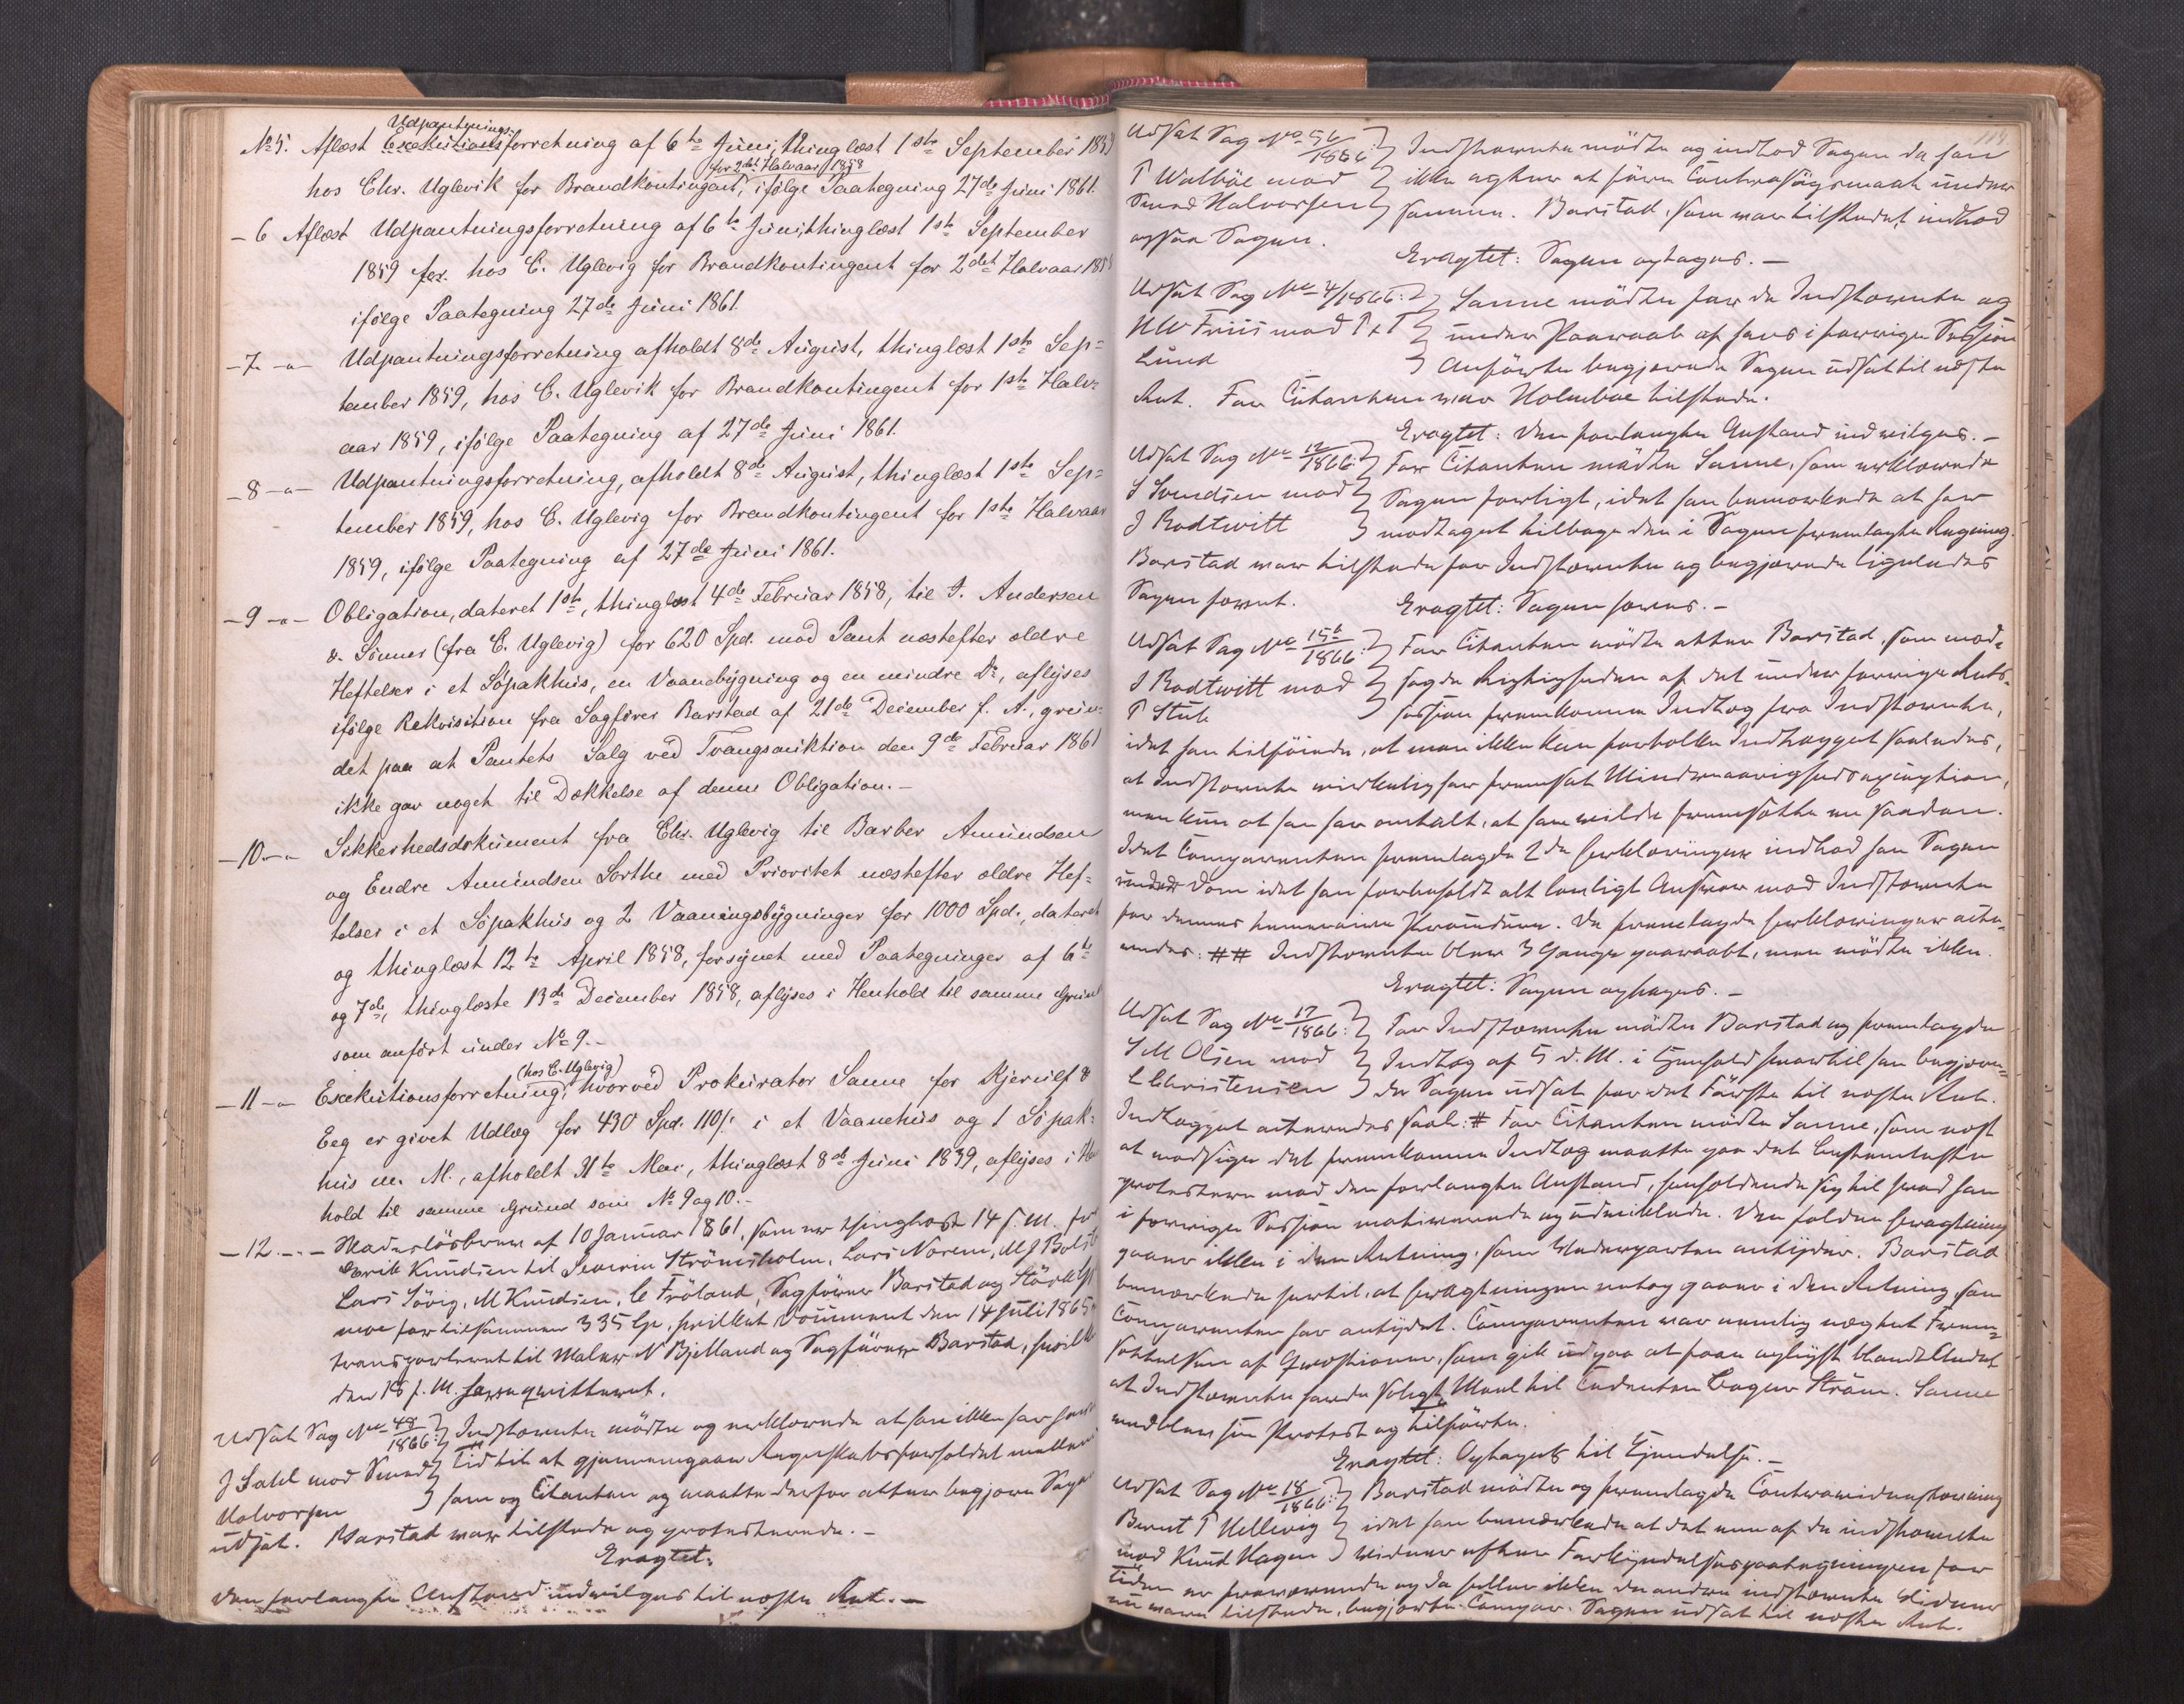 No 5. Aflæst Exekutionsforretning af 6te Juni, thinglæst 1ste September 1859
Udpantnings-
hos Chr. Uglevik for Brandkontingent, ifölge Paategning 27de Juni 1861.
for 2det Halvaar 1858
- 6 Aflæst Udpantningsforretning af 6te Juni, thinglæst 1ste September
1859 for. hos C. Uglevig for Brandkontingent for 2det Halvaar 1858
ifölge Paategning 27de Juni 1861.
- 7 -"- Udpantningsforretning afholdt 8de August, thinglæst 1ste Sep=
tember 1859, hos C. Uglevik for Brandkontingent for 1ste Halv=
aar 1859, ifölge Paategning af 27de Juni 1861.
- 8 -"- Udpantningsforretning, afholdt 8de August, thinglæst 1ste Sep=
tember 1859, hos C. Uglevig for Brandkontingent for 1ste Halvaar
1859, ifölge Paategning af 27de Juni 1861.
- 9 -"- Obligation, dateret 1ste, thinglæst 4de Februar 1858, til J. Andersen
& Sönner (fra C. Uglevig) for 620 Spd. mod Pant næstefter ældre
Heftelser i et Söpakhus, en Vaanebygning og en mindre Do, aflyses
ifölge Rekvisition fra Sagförer Barstad af 21de December f. A., grun-
det paa at Pantets Salg ved Tvangsauktion den 9de Februar 1861
ikke gav noget til Dækkelse af denne Obligation.-
- 10 -"- Sikkerhedsdokument fra Chr. Uglevig til Barber Amundsen
og Endre Amundsen Sorthe med Prioritet næstefter ældre Hef=
telser i et Söpakhus og 2 Vaaningsbygninger for 1000 Spd., dateret
og thinglæst 12te April 1858, forsynet med Paategninger af 6te
og 7de, thinglæste 13de December 1858, aflyses i Henhold til samme Grund
som anfört under No 9.-
- 11 -"- Exekutionsforretning, hvorved Prokurator Sanne for Kjerulf &
(hos C. Uglevig)
Eeg er givet Udlæg for 430 Spd. 110 s. i et Vaanehus og 1 Söpak=
hus m. M., afholdt 31te Mai, thinglæst 8de Juni 1859, aflyses i Hen
hold til samme Grund som No 9 og 10.-
- 12 -"- Skadeslösbrev af 10 Januar 1861, som er thinglæst 14 s. M. fra
Erik Knudsen til Severin Strömsholm, Lars Norem, M J
Lars Sövig, M Knudsen, C Fröland, Sagförer Barstad og
moe for tilsammen 335 Spd, hvilket Document den 14 Juli 1865 er
transporteret til Maler N Bjelland og Sagförer Barstad, hvilke
den 15 f. M. have qvitteret.
Udsat Sag No 48/1866: Indstævnte mödte og erklærede at han ikke har havt
J Sahl mod Svend Tid til at gjennemgaae Regnskabsforholdet mellem
Halvorsen ham og Citanten og maatte derfor atter begjære Sagen
udsat. Barstad var tilstede og protesterede.-
Eragtet:
Den forlangte Anstand indvilges til næste Ret.-
114
Udsat Sag No 56/1866: Indstævnte mödte og indlod Sagen da han
T Walböe mod ikke agter at före Contrasögsmaal under
Svend Halvorsen samme. Barstad, som var tilstedet, indlod
ogsaa Sagen.
Eragtet: Sagen optages.-
Udsat Sag No 4/1866: Sanne mödte for de Indstævnte og
H W Friis mod T & T under Paaraab af hans i forrige Session
Lund Anförte begjærede Sagen udsat til næste
Ret. For Citanten var Holmboe tilstede.
Eragtet: Den forlangte Anstand indvilges.-
Udsat Sag No 12/1866: For Citanten mödte Sanne, som erklærede
S Svendsen mod Sagen forligt, idet han bemærkede at have
J Rodtwitt modtaget tilbage den i Sagen fremlagte Regning.
Barstad var tilstede for Indstævnte og begjærede ligeledes
Sagen hævet. Eragtet: Sagen hæves.-
Udsat Sag No 15b/1866: For Citanten mödte atter Barstad, som mod-
J Rodtwitt mod sagde Rigtigheden af det under forrige Rets-
T Stub session fremkomne Indlæg fra Indstævnte,
idet han tilföiede, at man ikke kan fortolke Indlægget saaledes,
at Indstævnte virkelig har fremsat Mindreaarighedsexception,
men kun at han har omtalt, at han vilde fremsætte en saadan.
Idet Comparenten fremlagde 2de Erklæringer indlod han Sagen
under Dom idet han forbeholdt alt lovligt Ansvar mod Indstævnte
for dennes Procedure. De fremlagde Erklæringer acte-
redes: ## Indstævnte blev 3 Gange paaraabt, men mödte ikke.
Eragtet: Sagen optages.-
Udsat Sag No 17/1866: For Indstævnte mödte Barstad og fremlagde
S M Olsen mod Indlæg af 5 d. M. i Henhold hvortil han begjære-
C Christensen de Sagen udsat for det Förste til næste Ret.
Indlægget acteredes saal: # For Citanten mödte Sanne, som næst
at modsige det fremkomne Indlæg maatte paa det Bestemteste
protestere mod den forlangte Anstand, henholdende sig til hvad han
i forrige Session motiverende og udviklede. Den faldne Eragtning
gaaer ikke i den Retning, som Wederparten antyder. Barstad
bemærkede hertil, at Eragtningen netop gaaer i den Retning, som
Comparenten har antydet. Comparenten var nemlig nægtet Frem-
sættelsen af Qvæstioner, som gik ud paa at faae oplyst blandt Andet
at Indstævnte havde solgt Meel til Cedenten Bager Ström. Sanne
nedlagde sin Protest og tilförte.
Eragtet: Optages til Kjendelse.-
Udsat Sag No 18/1866: Barstad mödte og fremlagde Contravidnestævning
Bernt T Hellevig idet han bemærkede at det ene af de indstævnte
mod Knud Hagen Vidner efter Forkyndelsespaategningen for
Tiden er fraværende og da heller ikke de andre indstævnte Vidner
nu vare tilstede, begjærte Compar. Sagen udsat til næste Ret.